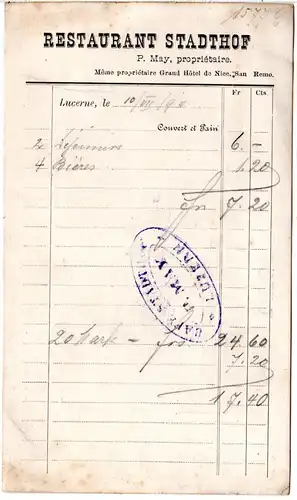 RESTAURANT STADTHOF
P. May, propriétaire.
Même propriétaire Grand Hôtel de Nice, San Remo.
Lucerne, le 10/VII/90 Fr Cts.
Couvert et Pain
2 Déjeuners 6.—
4 Bières 1.20
Fr 7.20
CAFE STADTHOF
P. MAY
LUZERN
20 Mark — frs 24.60
7.20
17.40